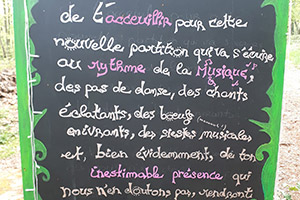 de t'accueillir pour cette
nouvelle partition qui va s'écrire
au rythme de la Musique,
des pas de danse, des chants
éclatants, des bœufs
enivrants, des siestes musicales
et, bien évidemment, de ton
inestimable présence qui
nous n'en doutons pas, rendront